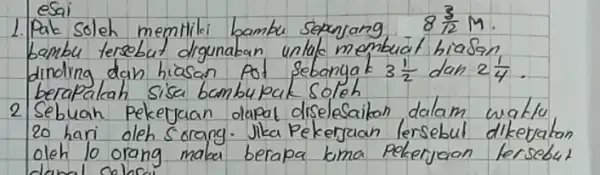 esai
1. Pak Soleh memiliki bambu sepanjang 8 3/12 M.
bambu tersebut digunakan untuk membuat hiasan
dinding dan hiasan Pot Sebanyak 3 1/2 dan 2 1/4.
berapakah sisa bambu pak Soleh
2 Sebuah Pekerjaan dapat diselesaikan dalam waktu
20 hari oleh 5 orang. Jika Pekerjaan tersebut dikerjakan
oleh 10 orang maka berapa lama Pekerjaan tersebut
dapat selesai